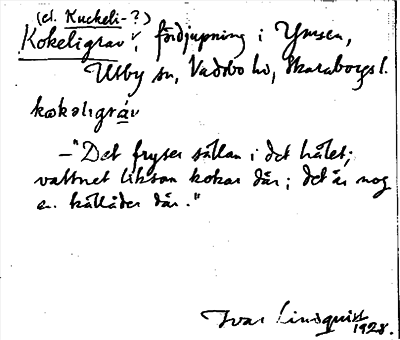 (el. Kuckeli-?)
Kokeligrav, fördjupning i Ymsen,
Utby sn, Vadsbo hd, Skaraborgs l.
kɷkəlıgráv
–"Det fryser sällan i det hålet;
vattnet liksom kokar där; det är nog
en källåder där."
Ivar Lindquist
1928.